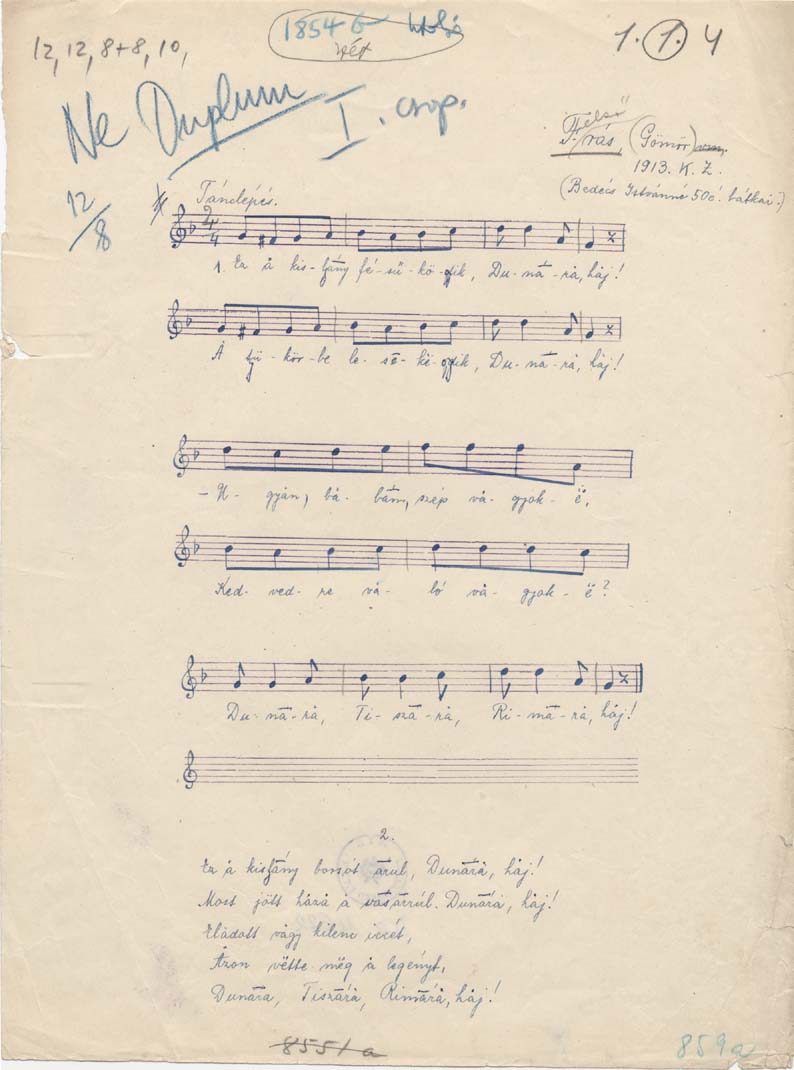 1854
12, 12, 8+8, 10,
1. 1. 4
Ne Duplum I. csop.
Felső
F. rás, (Gömör) vm.
1913. K. Z.
(Bedécs Istvánné 50é. bátkai.)
12/8
Tánclépés.
2/4
1. Ez å kis-lány fé-sü-kö-dik, Du-nā-rå, håj!
Å tü-kör-be le-se-ke-dik, Du-nā-rå, håj!
-U-gyån, bå-båm, szép vå-gyok-ë,
Ked-ved-re vå-ló vå-gyok-ë?
Du-nā-rå, Ti-szā-rå, Ri-mā-rå, håj!
2.
Ez å kislány borsót ārul, Dunārå, håj!
Most jött håzå å vāsārrúl. Dunārå, håj!
Elådott vågy kilenc iccét,
Åzon vëtte mëg å legényt,
Dunārå, Tiszārå, Rimārå, håj!
8551/a
859a